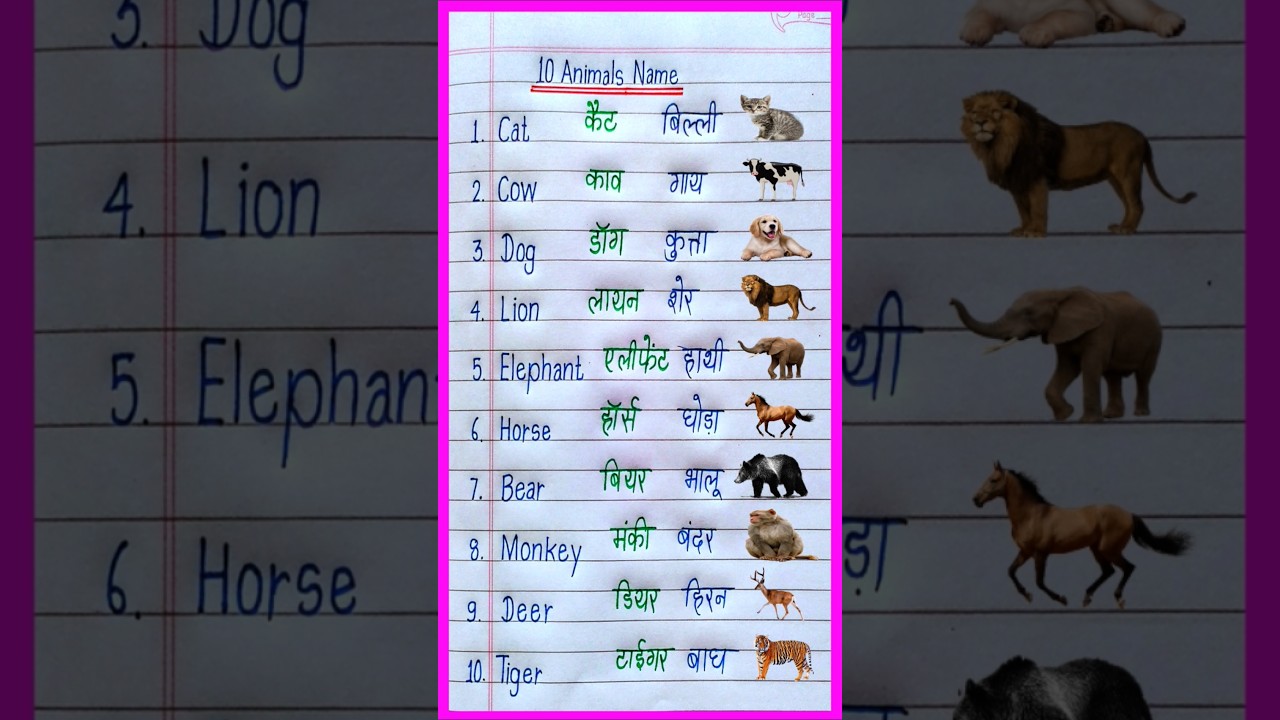 Page
10 Animals Name
1. Cat कैट बिल्ली
2. Cow काव गाय
3. Dog डॉग कुत्ता
4. Lion लायन शेर
5. Elephant एलीफेंट हाथी
6. Horse हॉर्स घोड़ा
7. Bear बियर भालू
8. Monkey मंकी बंदर
9. Deer डियर हिरन
10. Tiger टाईगर बाघ
3. Dog
4. Lion
5. Elephan
6. Horse
थी
ड़ा